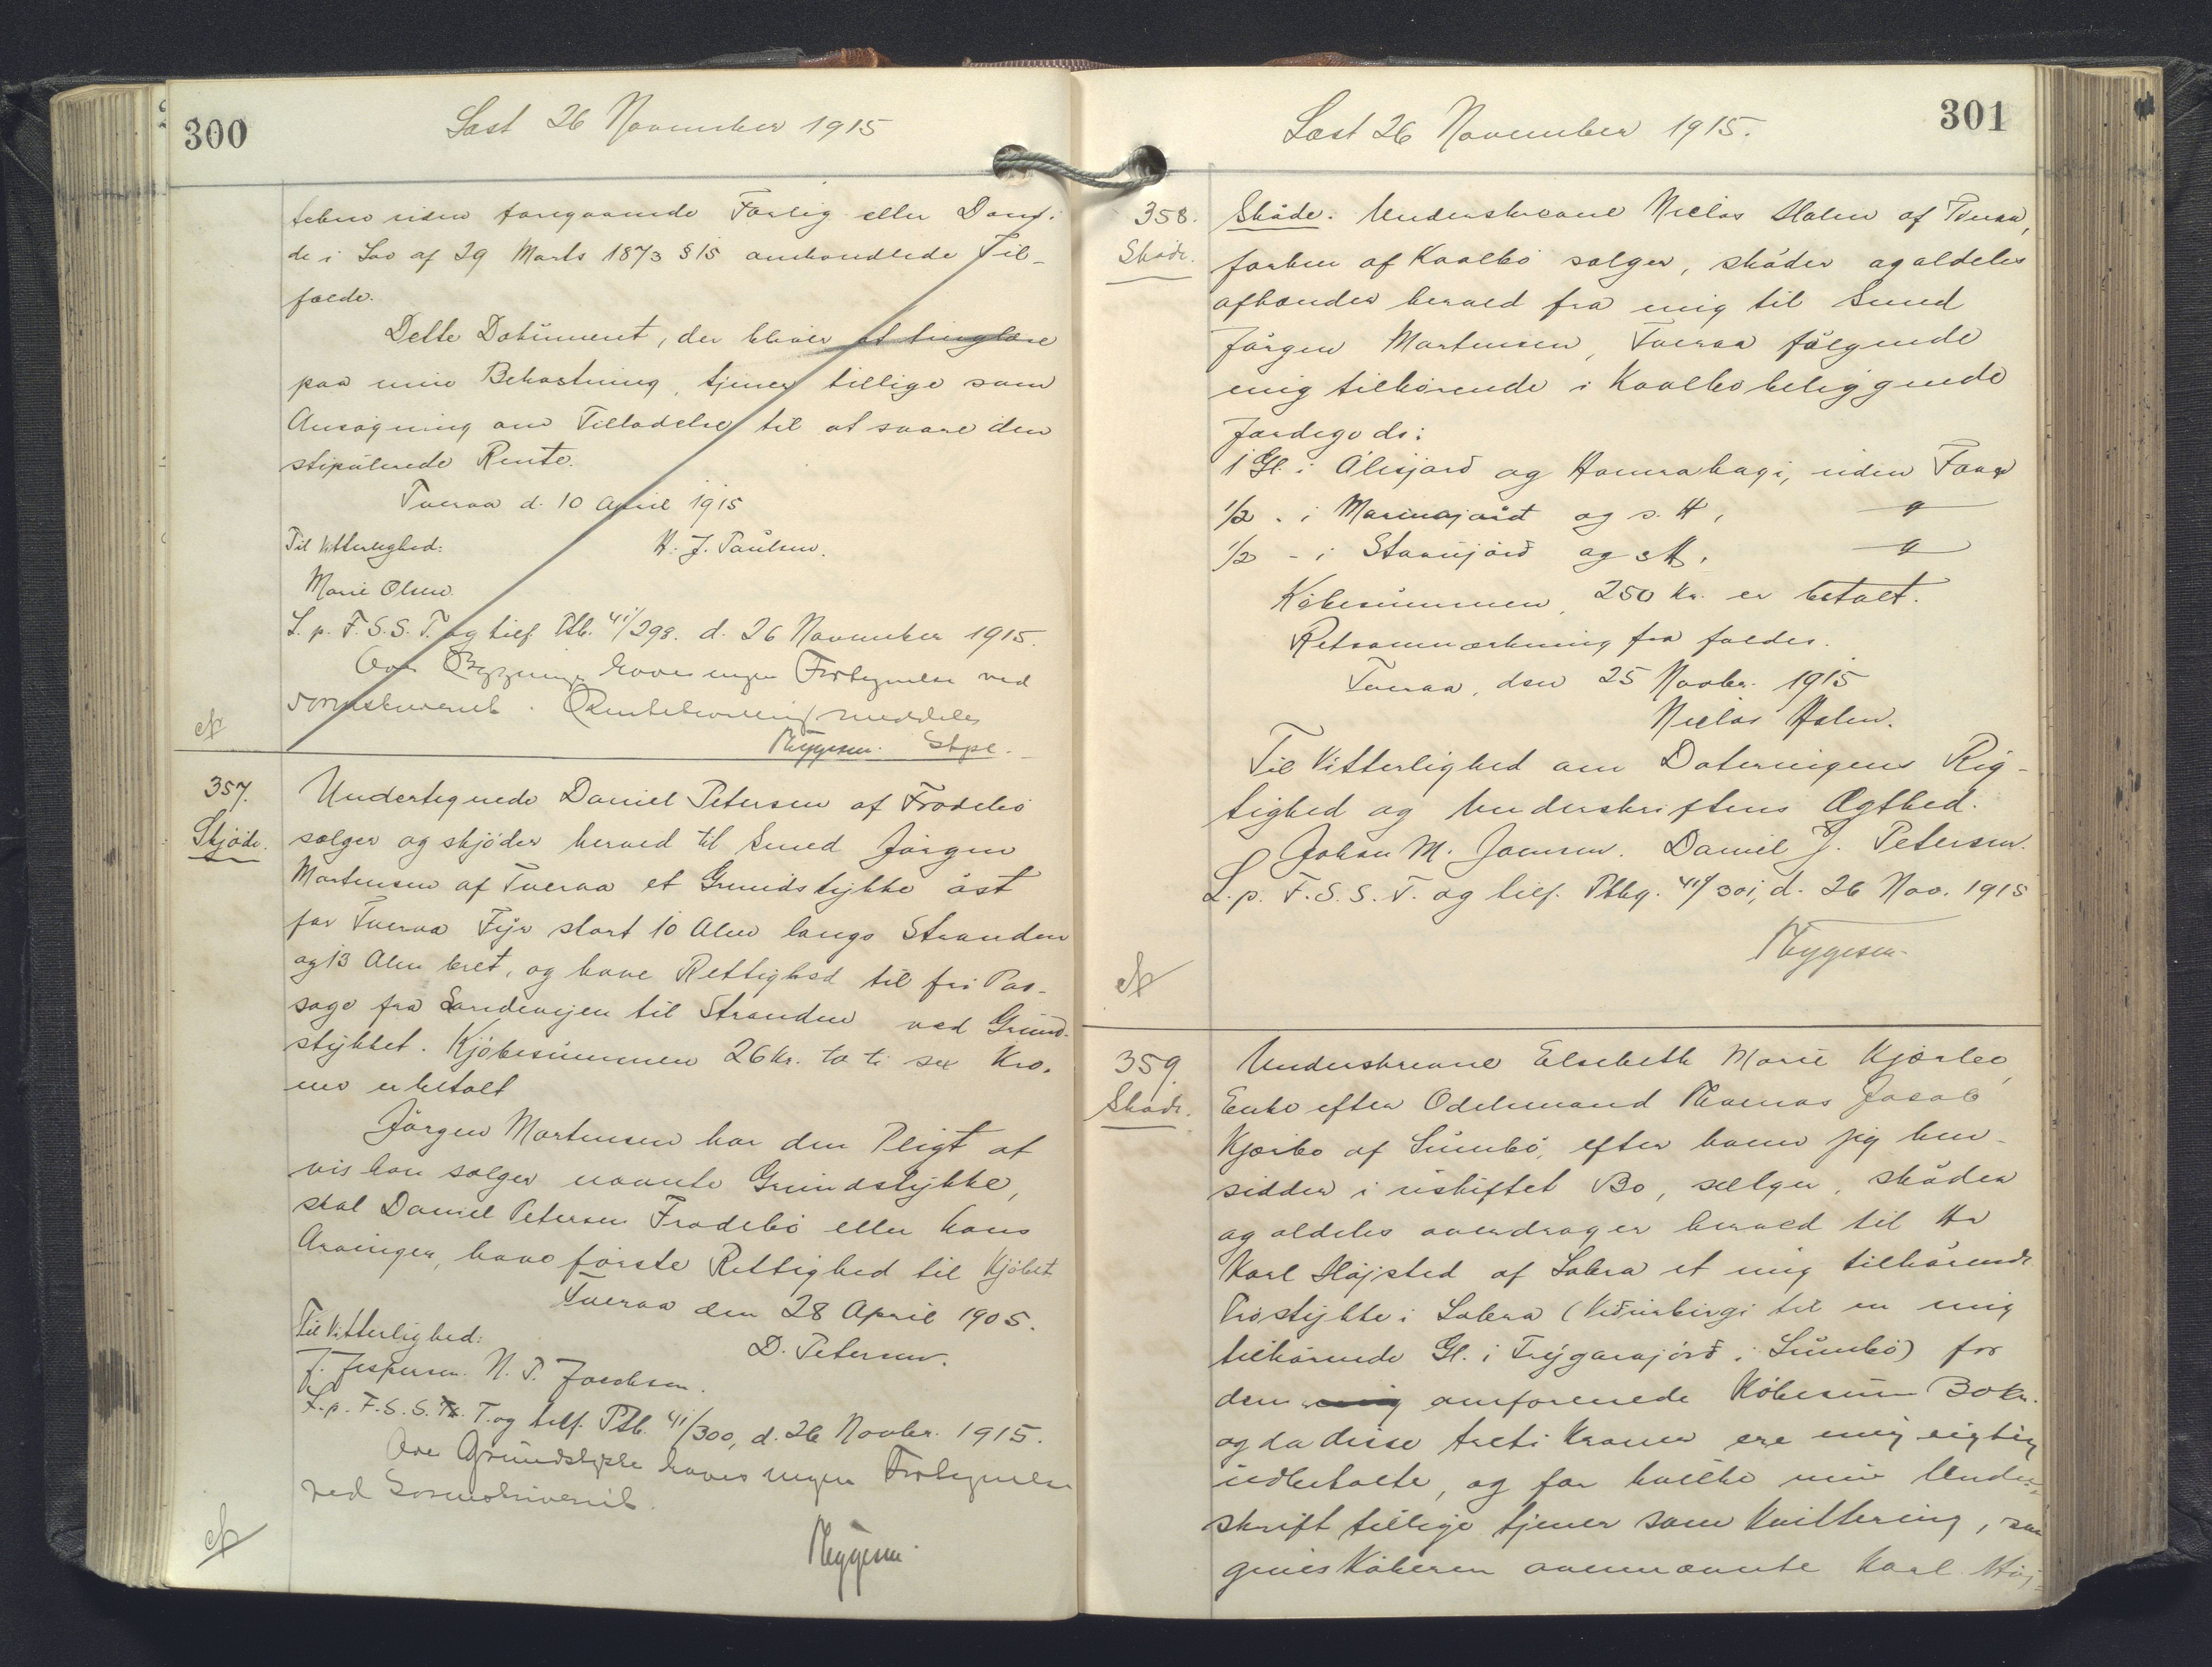 300
Læst 26 November 1915
teknes uden foregaaende Forlig eller Dom, i
de i Lov af 29 Marts 1873 § 15 omhandlede Til-
fælde.
Dette Dokument, der bliver at tinglæse
paa min Bekostning, tjener tillige som
Ansøgning om Tilladelse til at svare den
stipulerede Rente.
Tveraa d. 10 April 1915
Til Vitterlighed: H. J. Paulsen.
Marie Olsen.
L. p. F. S. S. T. og tilf. Ptb. 41/298. d. 26 November 1915.
Over Bygninge haves ingen Protegnelse ved
Sorenskriveriet. Rentebevilling meddeles
Myggesen. Stpl.
357.
Skjøde.
Undertegnede Daniel Petersen af Frodebø
sælger og skjøder herved til Smed Jørgen
Mortensen af Tveraa et Grundstykke øst
for Tveraa Fyr stort 10 Alen langs Stranden
og 13 Alen bret, og have Rettighed til fri Pas-
sage fra Landevejen til Stranden ved Grund-
stykket. Kjøbesummen 26 Kr. to ti sex Kro-
ner er betalt
Jørgen Mortensen har den Pligt at
vis han sælger nævnte Grundstykke,
skal Daniel Petersen Frodebø eller hans
Arvinger, have første Rettighed til Kjøbet
Tveraa den 28 April 1905.
Til Vitterlighed: D. Petersen.
J. Jespersen. N. P. Jacobsen.
L. p. F. S. S. T. og tilf. Ptb. 41/300, d. 26 Novbr. 1915.
Over Grundstykke haves ingen Protegnelse
ved Sorenskriveriet.
Myggesen.
301
Læst 26 November 1915.
358.
Skøde.
Skøde. Underskrevne Niclas Holm af Tveraa,
forhen af Kvalbø sælger, skøder og aldeles
afhænder herved fra mig til Smed
Jørgen Mortensen, Tveraa følgende
mig tilhørende i Kvalbø beliggende
Jordegods:
1 Gl. i Álisjørd og Hamrahagi, uden Faar
1/2 - i Marinajørd og s. H,
1/2 - i jørd og s H,
Købesummen, 250 Kr. er betalt.
Retsanmærkning fra faldes.
Tveraa, den 25 Novbr. 1915
Niclas Holm.
Til Vitterlighed om Dateringens Rig-
tighed og Underskriftens Ægthed.
Johan M. Joensen. Daniel J. Petersen.
L. p. F. S. S. T. og tilf. Ptbg. 41/301, d. 26 Nov. 1915
Myggesen.
359.
Skøde.
Underskrevne Elsebeth Marie Kjærbo,
Enke efter Odelsmand Thomas Jacob
Kjærbo af Sumbø, efter hvem jeg hen-
sidder i uskiftet Bo, sælger, skøder
og aldeles overdrager herved til Hr
Karl Højsted af Lobra et mig tilhørende
Trøstykke i Lobra (Viðurbirgi til en mig
tilhørende Gl. i Trýgarajørð i Sumbø) for
den omforenede Købesum 30 Kr.
og da disse treti Kroner ere mig rigtig
udbetalte, og for hvilke min Under-
skrift tillige tjener som Kvittering, saa
gives Køberen ovennævnte Karl Høj-